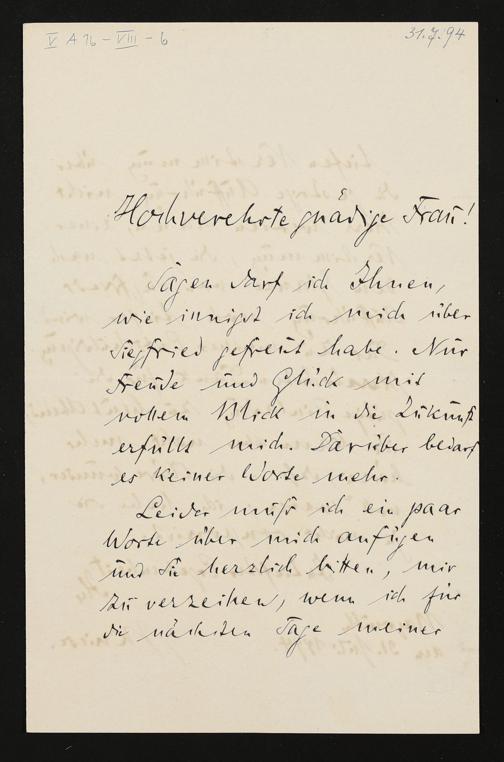 V A 16 - VIII - 6
31.7.94
Hochverehrte gnädige Frau!
Sagen darf ich Ihnen,
wie innigst ich mich über
Siegfried gefreut habe. Nur
Freude und Glück mit
vollem Blick in die Zukunft
erfüllt mich. Darüber bedarf
es keiner Worte mehr.
Leider muß ich ein paar
Worte über mich anfügen
und Sie herzlich bitten, mir
zu verzeihen, wenn ich für
die nächsten Tage meiner